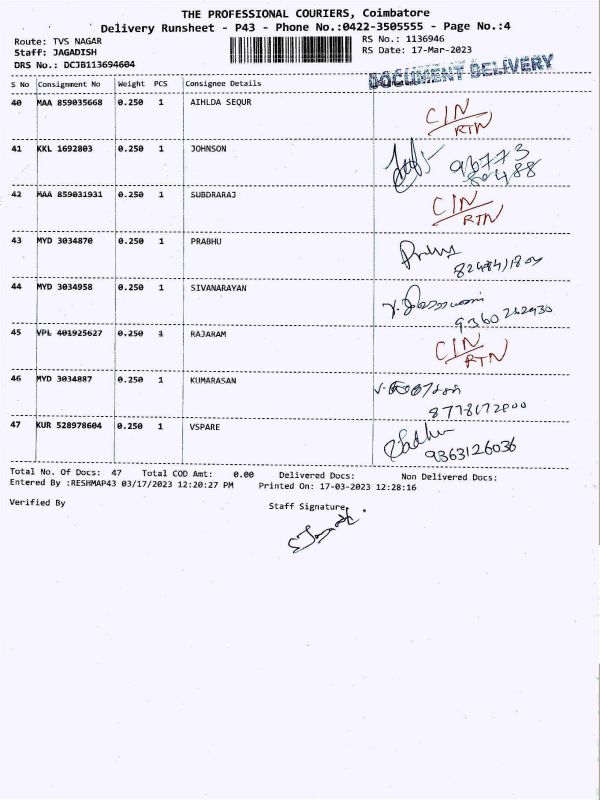 THE PROFESSIONAL COURIERS, Coimbatore
Delivery Runsheet - P43 - Phone No.:0422-3505555 - Page No.:4
Route: TVS NAGAR
RS No.: 1136946
Staff: JAGADISH
RS Date: 17-Mar-2023
DRS No.: DCJB113694604
DOCUMENT DELIVERY
S No Consignment No Weight PCS Consignee Details
40 MAA 859035668 0.250 1 AIHLDA SEQUR
C/N
RTN
41 KKL 1692803 0.250 1 JOHNSON
96773
80488
42 MAA 859031931 0.250 1 SUBDRARAJ
C/N
RTN
43 MYD 3034870 0.250 1 PRABHU
44 MYD 3034958 0.250 1 SIVANARAYAN
9360252930
45 VPL 401925627 0.250 1 RAJARAM
C/N
RTN
46 MYD 3034887 0.250 1 KUMARASAN
47 KUR 528978604 0.250 1 VSPARE
9363126036
Total No. Of Docs: 47 Total COD Amt: 0.00 Delivered Docs: Non Delivered Docs:
Entered By :RESHMAP43 03/17/2023 12:20:27 PM Printed On: 17-03-2023 12:28:16
Verified By
Staff Signature